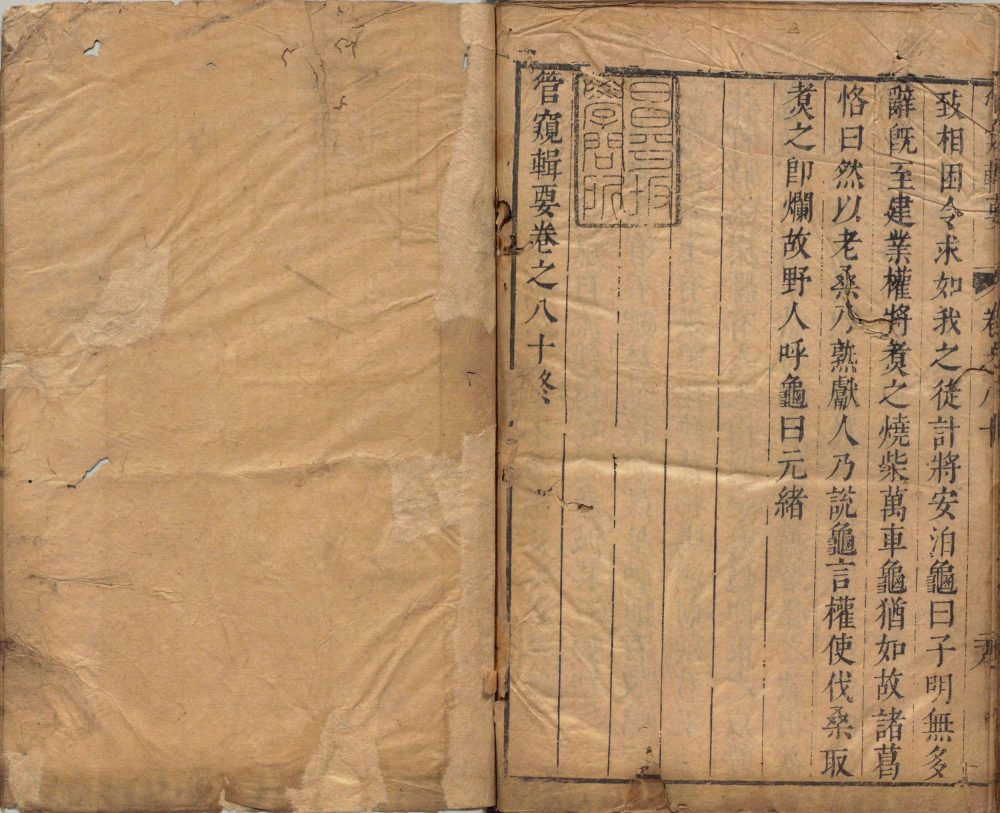 管窺輯要 卷之八十
致相困令求如我之徒計將安泊龜曰子明無多
辭旣至建業權將煑之燒柴萬車龜猶如故諸葛
恪曰然以老桑乃熟獻人乃說龜言權使伐桑取
煑之卽爛故野人呼龜曰元緒
管窺輯要卷之八十終